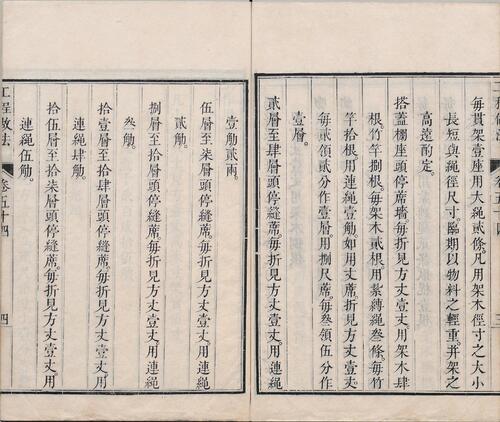 每貫架壹座用大繩貳條凡用架木徑寸之大小
長短與繩徑尺寸臨期以物料之輕重并架之
高遠酌定
搭蓋棚座頭停席墻每折見方丈壹丈用架木肆
根竹竿捌根每架木貳根用紮縛繩叁條每竹
竿拾根用連繩壹觔如用丈席折見方丈壹丈
每貳領貳分作壹層用捌尺席每叁領伍分作
壹層
貳層至肆層頭停縫席每折見方丈壹丈用連繩
壹觔貳兩
伍層至柒層頭停縫席每折見方丈壹丈用連繩
貳觔
捌層至拾層頭停縫席每折見方丈壹丈用連繩
叁觔
拾壹層至拾肆層頭停縫席每折見方丈壹丈用
連繩肆觔
拾伍層至拾柒層頭停縫席每折見方丈壹丈用
連繩伍觔
工程做法 卷五十四 四